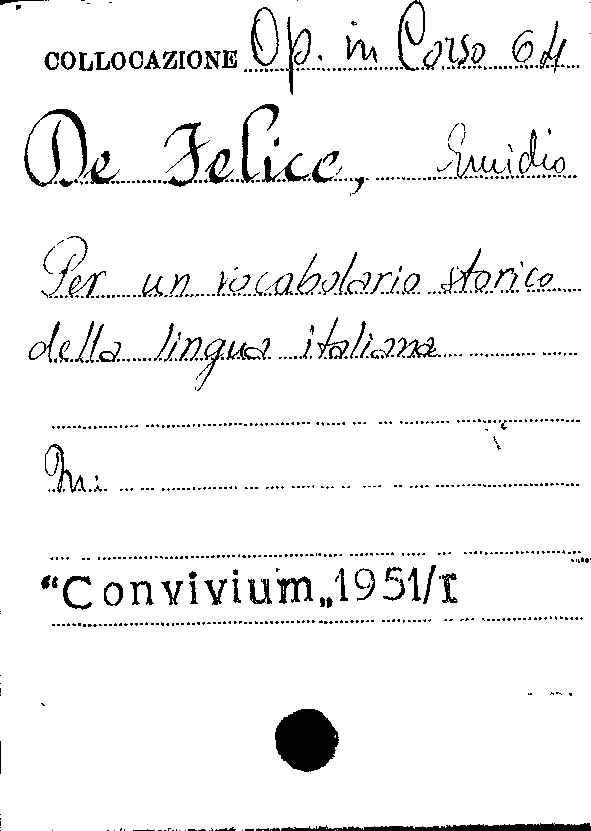 COLLOCAZIONE Op. in Corso 64
De Felice, Emidio
Per un vocabolario storico
della lingua italiana
In:
"Convivium„ 1951/I